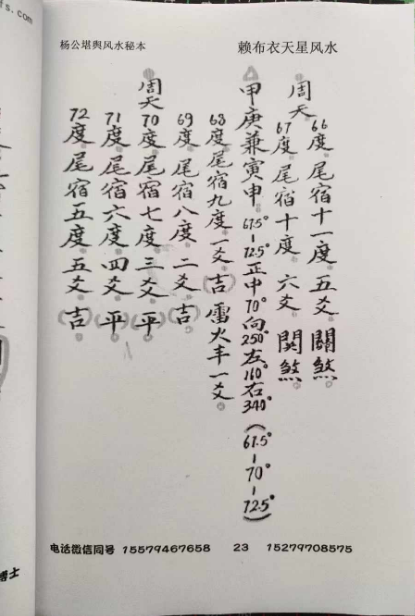 s.com
杨公堪舆风水秘本
赖布衣天星风水
周天
66度。尾宿十一度。五爻。關煞。
67度。尾宿十度。六爻。関煞。
甲庚兼寅申67.5°-72.5°正中70°向250°左160°右340°(67.5°-70°-72.5°)
68度尾宿九度一爻(吉)雷火丰一爻。
69度。尾宿八度。二爻。吉
周天
70度。尾宿七度。三爻。平
71度。尾宿六度。四爻。平
72度。尾宿五度。五爻。(吉)
电话微信同号 15579467658 23 15279708575